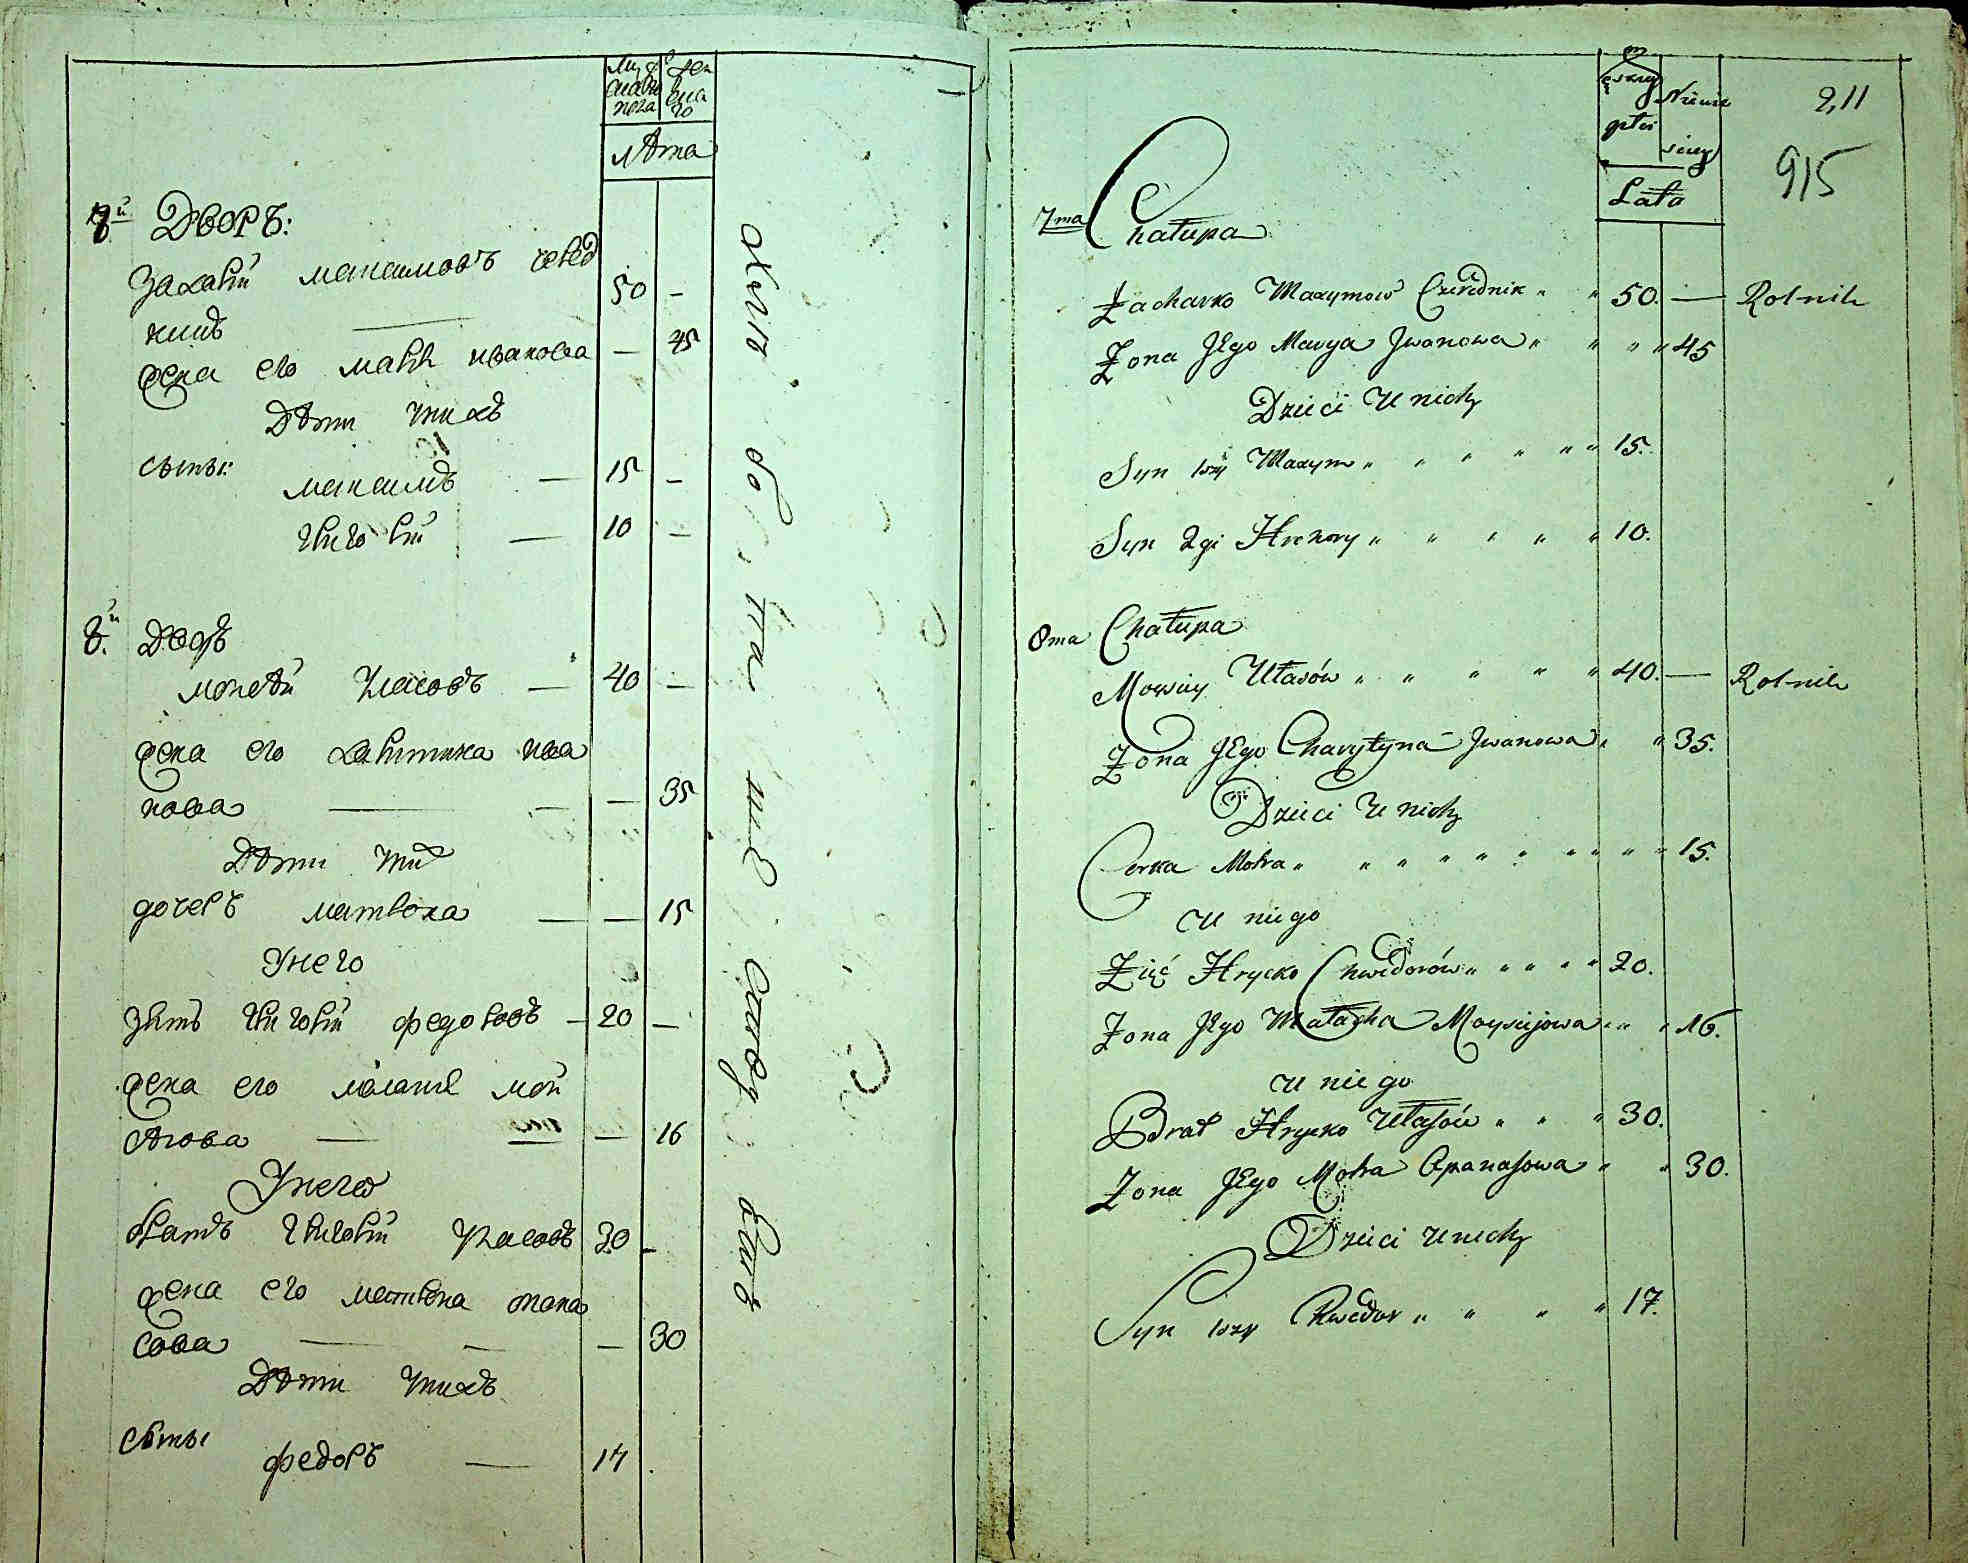 мужескаго пола
женскаго
лѣта
7й Дворъ:
Захарій максимовъ черед
никъ 50 —
жена его марія иванова — 45
Дѣти ихъ
сыны: максимъ — 15 —
григорій — 10 —
8й Дворъ
мокѣй Уласовъ — 40 —
жена его харитина ива
нова — — — 35
Дѣти ихъ
дочерь матрона — — 15
У него
зять григорій федоровъ — 20 —
жена его маланія мой
сѣюва — — 16
У него
братъ григорій Уласовъ 30 —
жена его матрона опана
сова — — — 30
Дѣти ихъ
сыны федоръ — 17
2,11
915
Męzkiey płci
Niewieściey
Lata
7ma Chałupa
Zacharko Maxymow Czerednik „ „ 50. — Rolnik
Zona JEgo Marya Jwanowa „ „ „ „ 45
Dzieci U nich
Syn 1szy Maxym „ „ „ „ „ „ 15.
Syn 2gi Hrehory „ „ „ „ „ 10.
8ma Chałupa
Moysiey Ułasów „ „ „ „ „ 40. — Rolnik
Zona JEgo Charytyna Jwanowa „ „ 35.
Dzieci U nich
Corka Motra „ „ „ „ „ „ „ „ „ „ 15.
U niego
Zięć Hrycko Chwedorów „ „ „ „ „ 20.
Zona JEgo Małacha Moysiejowa „ „ „ 16.
U niego
Brat Hrycko Ułasów „ „ „ 30.
Zona JEgo Motra Apanasowa „ „ 30.
Dzieci U nich
Syn 1szy Chwedor „ „ „ „ 17.